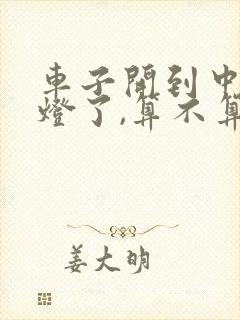 車子開到中
燈了,算不算
姜大明